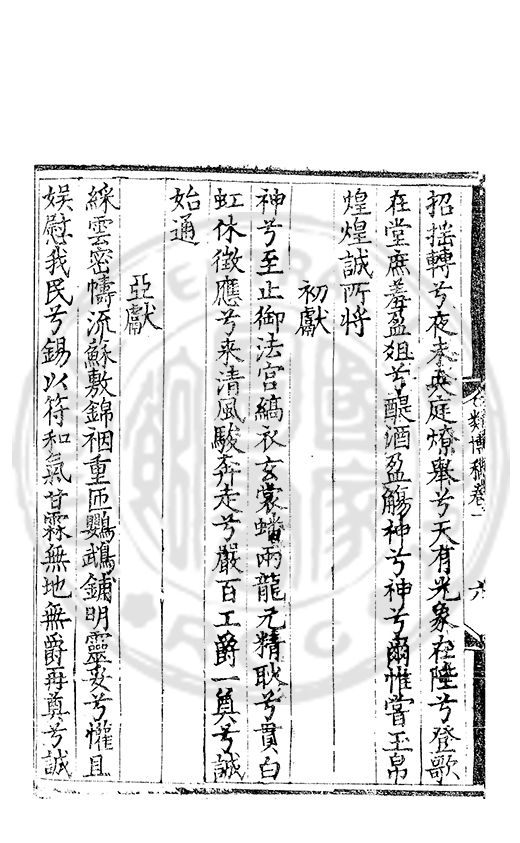 招搖轉兮夜未央庭燎舉兮天有光象在陸兮登歌
在堂庶羞盈俎兮醍酒盈觴神兮神兮爾惟嘗玉帛
煌煌誠所將
初獻
神兮至止御法宮縞衣玄裳蟠兩龍元精耿兮貫白
虹休徵應兮来清風駿奔走兮嚴百工爵一奠兮誠
始通
亞獻
綵雲密幬流蘇敷錦裀重匝鸚鵡鋪明靈妥兮懽且
娱慰我民兮錫以符和氣甘霖無地無爵再奠兮誠
類博稿卷一
六